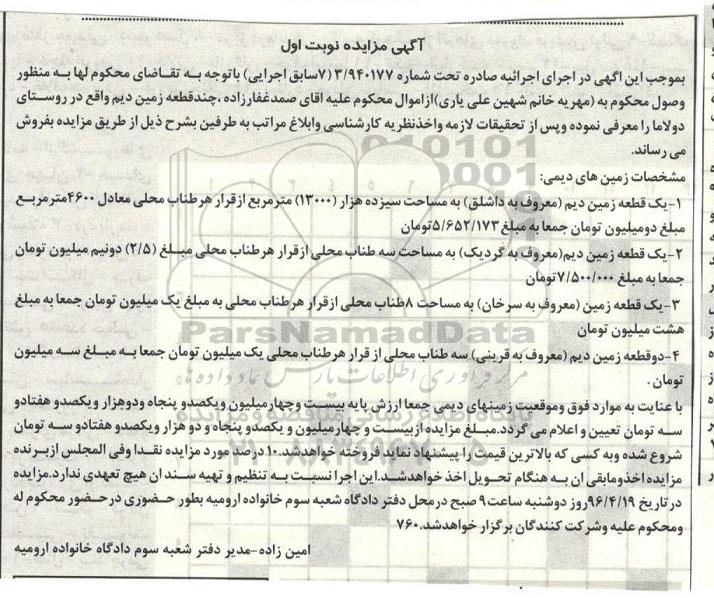 آگهی مزایده نوبت اول
بموجب این اگهی در اجرای اجرائیه صادره تحت شماره ۳/۹۴۰۱۷۷ (۷سابق اجرایی) باتوجه به تقاضای محکوم لها به منظور
وصول محکوم به (مهریه خانم شهین علی یاری)ازاموال محکوم علیه اقای صمدغفارزاده ،چندقطعه زمین دیم واقع در روستای
دولاما را معرفی نموده وپس از تحقیقات لازمه واخذنظریه کارشناسی وابلاغ مراتب به طرفین بشرح ذیل از طریق مزایده بفروش
می رساند.
مشخصات زمین های دیمی:
۱-یک قطعه زمین دیم (معروف به داشلق) به مساحت سیزده هزار (۱۳۰۰۰) مترمربع ازقرار هرطناب محلی معادل ۴۶۰۰مترمربع
مبلغ دومیلیون تومان جمعا به مبلغ ۵/۶۵۲/۱۷۳تومان
۲-یک قطعه زمین دیم(معروف به گردیک) به مساحت سه طناب محلی ازقرار هرطناب محلی مبلغ (۲/۵) دونیم میلیون تومان
جمعا به مبلغ ۷/۵۰۰/۰۰۰تومان
۳-یک قطعه زمین (معروف به سرخان) به مساحت ۸طناب محلی ازقرار هرطناب محلی به مبلغ یک میلیون تومان جمعا به مبلغ
هشت میلیون تومان
۴-دوقطعه زمین دیم (معروف به قرینی) سه طناب محلی از قرار هرطناب محلی یک میلیون تومان جمعا به مبلغ سه میلیون
تومان .
با عنایت به موارد فوق وموقعیت زمینهای دیمی جمعا ارزش پایه بیست وچهارمیلیون ویکصدو پنجاه ودوهزار ویکصدو هفتادو
سه تومان تعیین و اعلام می گردد.مبلغ مزایده ازبیست و چهارمیلیون و یکصدو پنجاه و دو هزار ویکصدو هفتادو سه تومان
شروع شده وبه کسی که بالاترین قیمت را پیشنهاد نماید فروخته خواهدشد.۱۰درصد مورد مزایده نقدا وفی المجلس ازبرنده
مزایده اخذومابقی ان به هنگام تحویل اخذ خواهدشد.این اجرا نسبت به تنظیم و تهیه سند ان هیچ تعهدی ندارد.مزایده
در تاریخ ۹۶/۴/۱۹روز دوشنبه ساعت۹ صبح درمحل دفتر دادگاه شعبه سوم خانواده ارومیه بطور حضوری درحضور محکوم له
ومحکوم علیه وشرکت کنندگان برگزار خواهدشد.۷۶۰
امین زاده-مدیر دفتر شعبه سوم دادگاه خانواده ارومیه
ParsNamadData